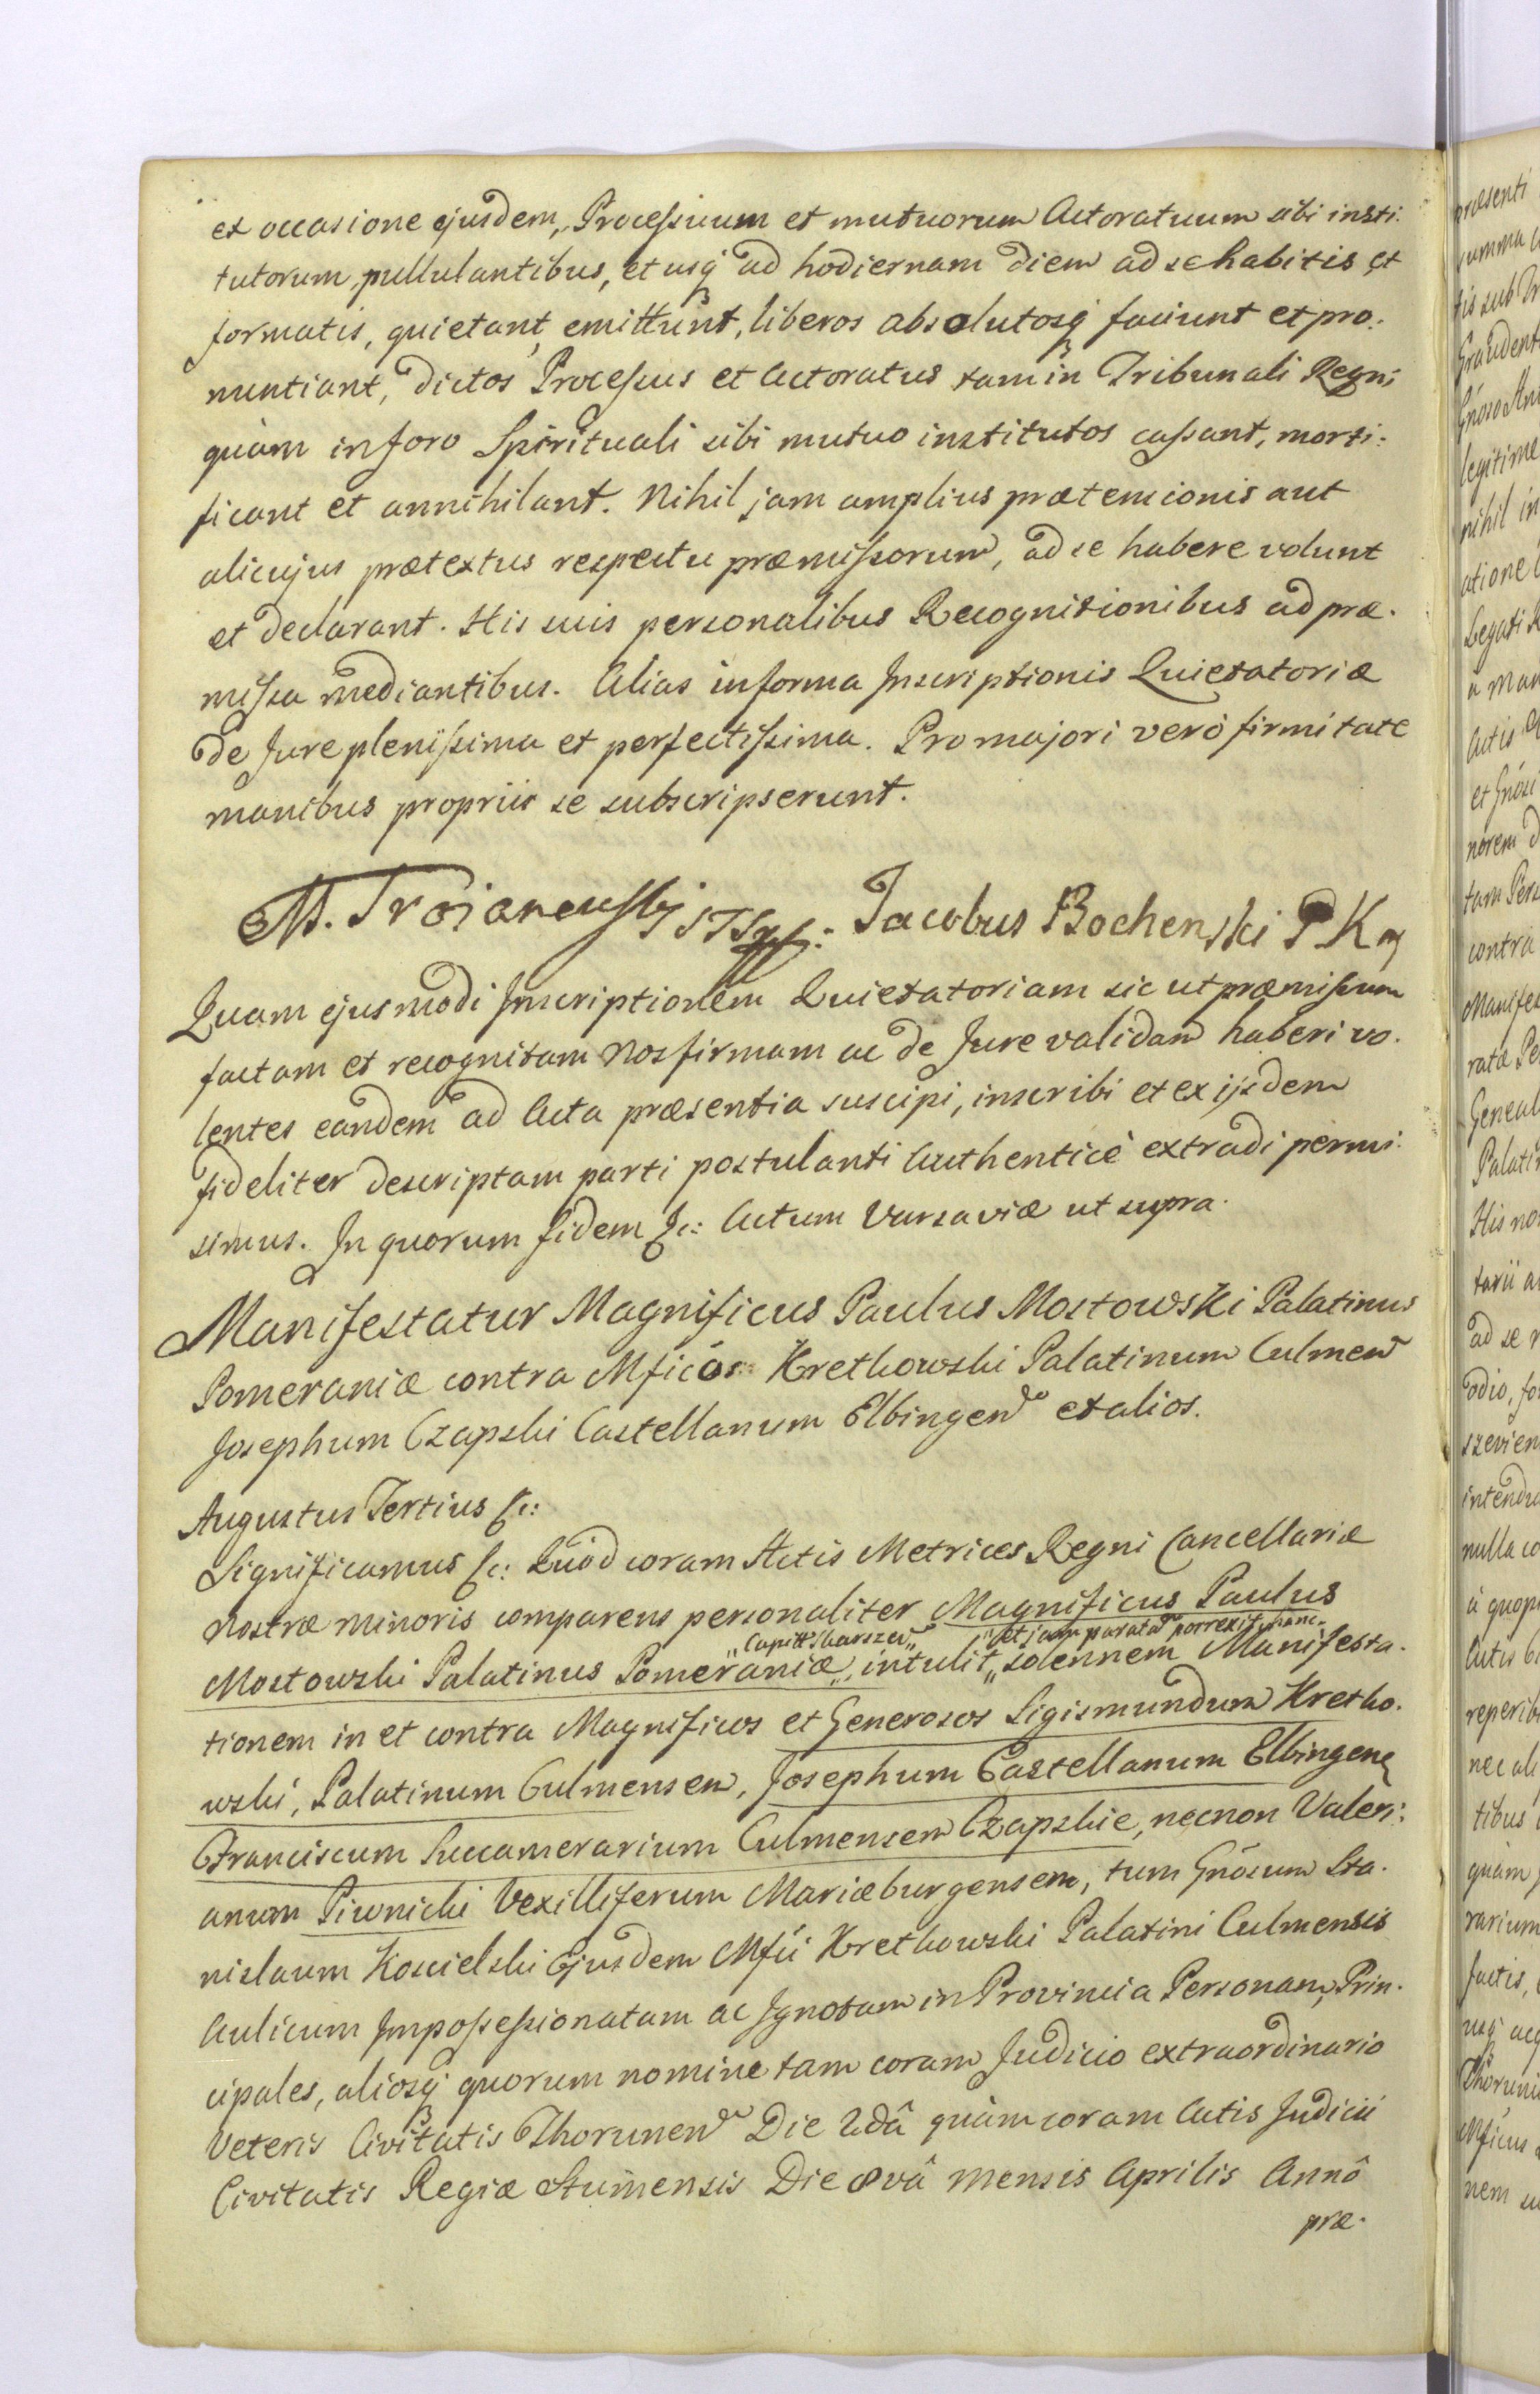 et occasione ejusdem, Processuum et mutuorum Actoratuum sibi insti:
tutorum, pullulantibus, et usq́ ad hodiernam diem ad se habitis et
formatis, quietant, emittunt, liberos absolutosq́ faciunt et pro:
nuntiant, dictos Processus et Actoratus tam in Tribunali Regni
quàm in foro Spirituali sibi mutuo institutos cassant, morti:
ficant et annihilant. Nihil jam amplius prætensionis aut
alicujus prætextus respectu præmissorum, ad se habere volunt
et declarant. His suis personalibus Recognitionibus ad præ.
missa mediantibus. Alias in forma Inscriptionis Quietatoriæ
de Jure plenissima et perfectissima. Pro majori verò firmitate
manibus propriis se subscripserunt.
M. Troianowski Jacobus Bochenski P K
Quam ejusmodi Inscriptionem Quietatoriam sic ut præmissum
factam et recognitam Nos firmam ac de Jure validam haberi vo.
lentes eandem ad Acta præsentia suscipi, inscribi et ex ijsdem
fideliter descriptam parti postulanti Authenticè extradi permi:
simus. In quorum fidem &c: Actum Varsaviæ ut supra.
Manifestatur Magnificus Paulus Mostowski Palatinus
Pomeraniæ contra Mficós Kretkowski Palatinum Culmen
Josephum Czapski Castellanum Elbingen et alios.
Augustus Tertius &c:
Significamus &c: Quod coram Actis Metrices Regni Cancellariæ
Nostræ Minoris comparens personaliter Magnificus Paulus
„Capitt Skarszew„ „et jam parata porrexit hanc
Mostowski Palatinus Pomeraniæ„ intulit„ solennem Manifesta.
tionem in et contra Magnificos et Generosos Sigismundum Kretko.
wski, Palatinum Culmensem, Josephum Castellanum Elbingen
Franciscum Succamerarium Culmensem Czapskie, necnon Valeri:
anum Piwnicki Vexilliferum Mariæburgensem, tum Gnósum Sta.
nislaum Koscielski Ejusdem Mfci Kretkowski Palatini Culmensis
Aulicum Impossessionatam ac Ignotam in Provincia Personam, Prin.
cipales, aliosq́ quorum nomine tam coram Judicio extraordinario
Veteris Civitatis Thorunen Die 2dâ quàm coram Actis Judicii
Civitatis Regiæ Stumensis Die 8vâ Mensis Aprilis Annô
præ.